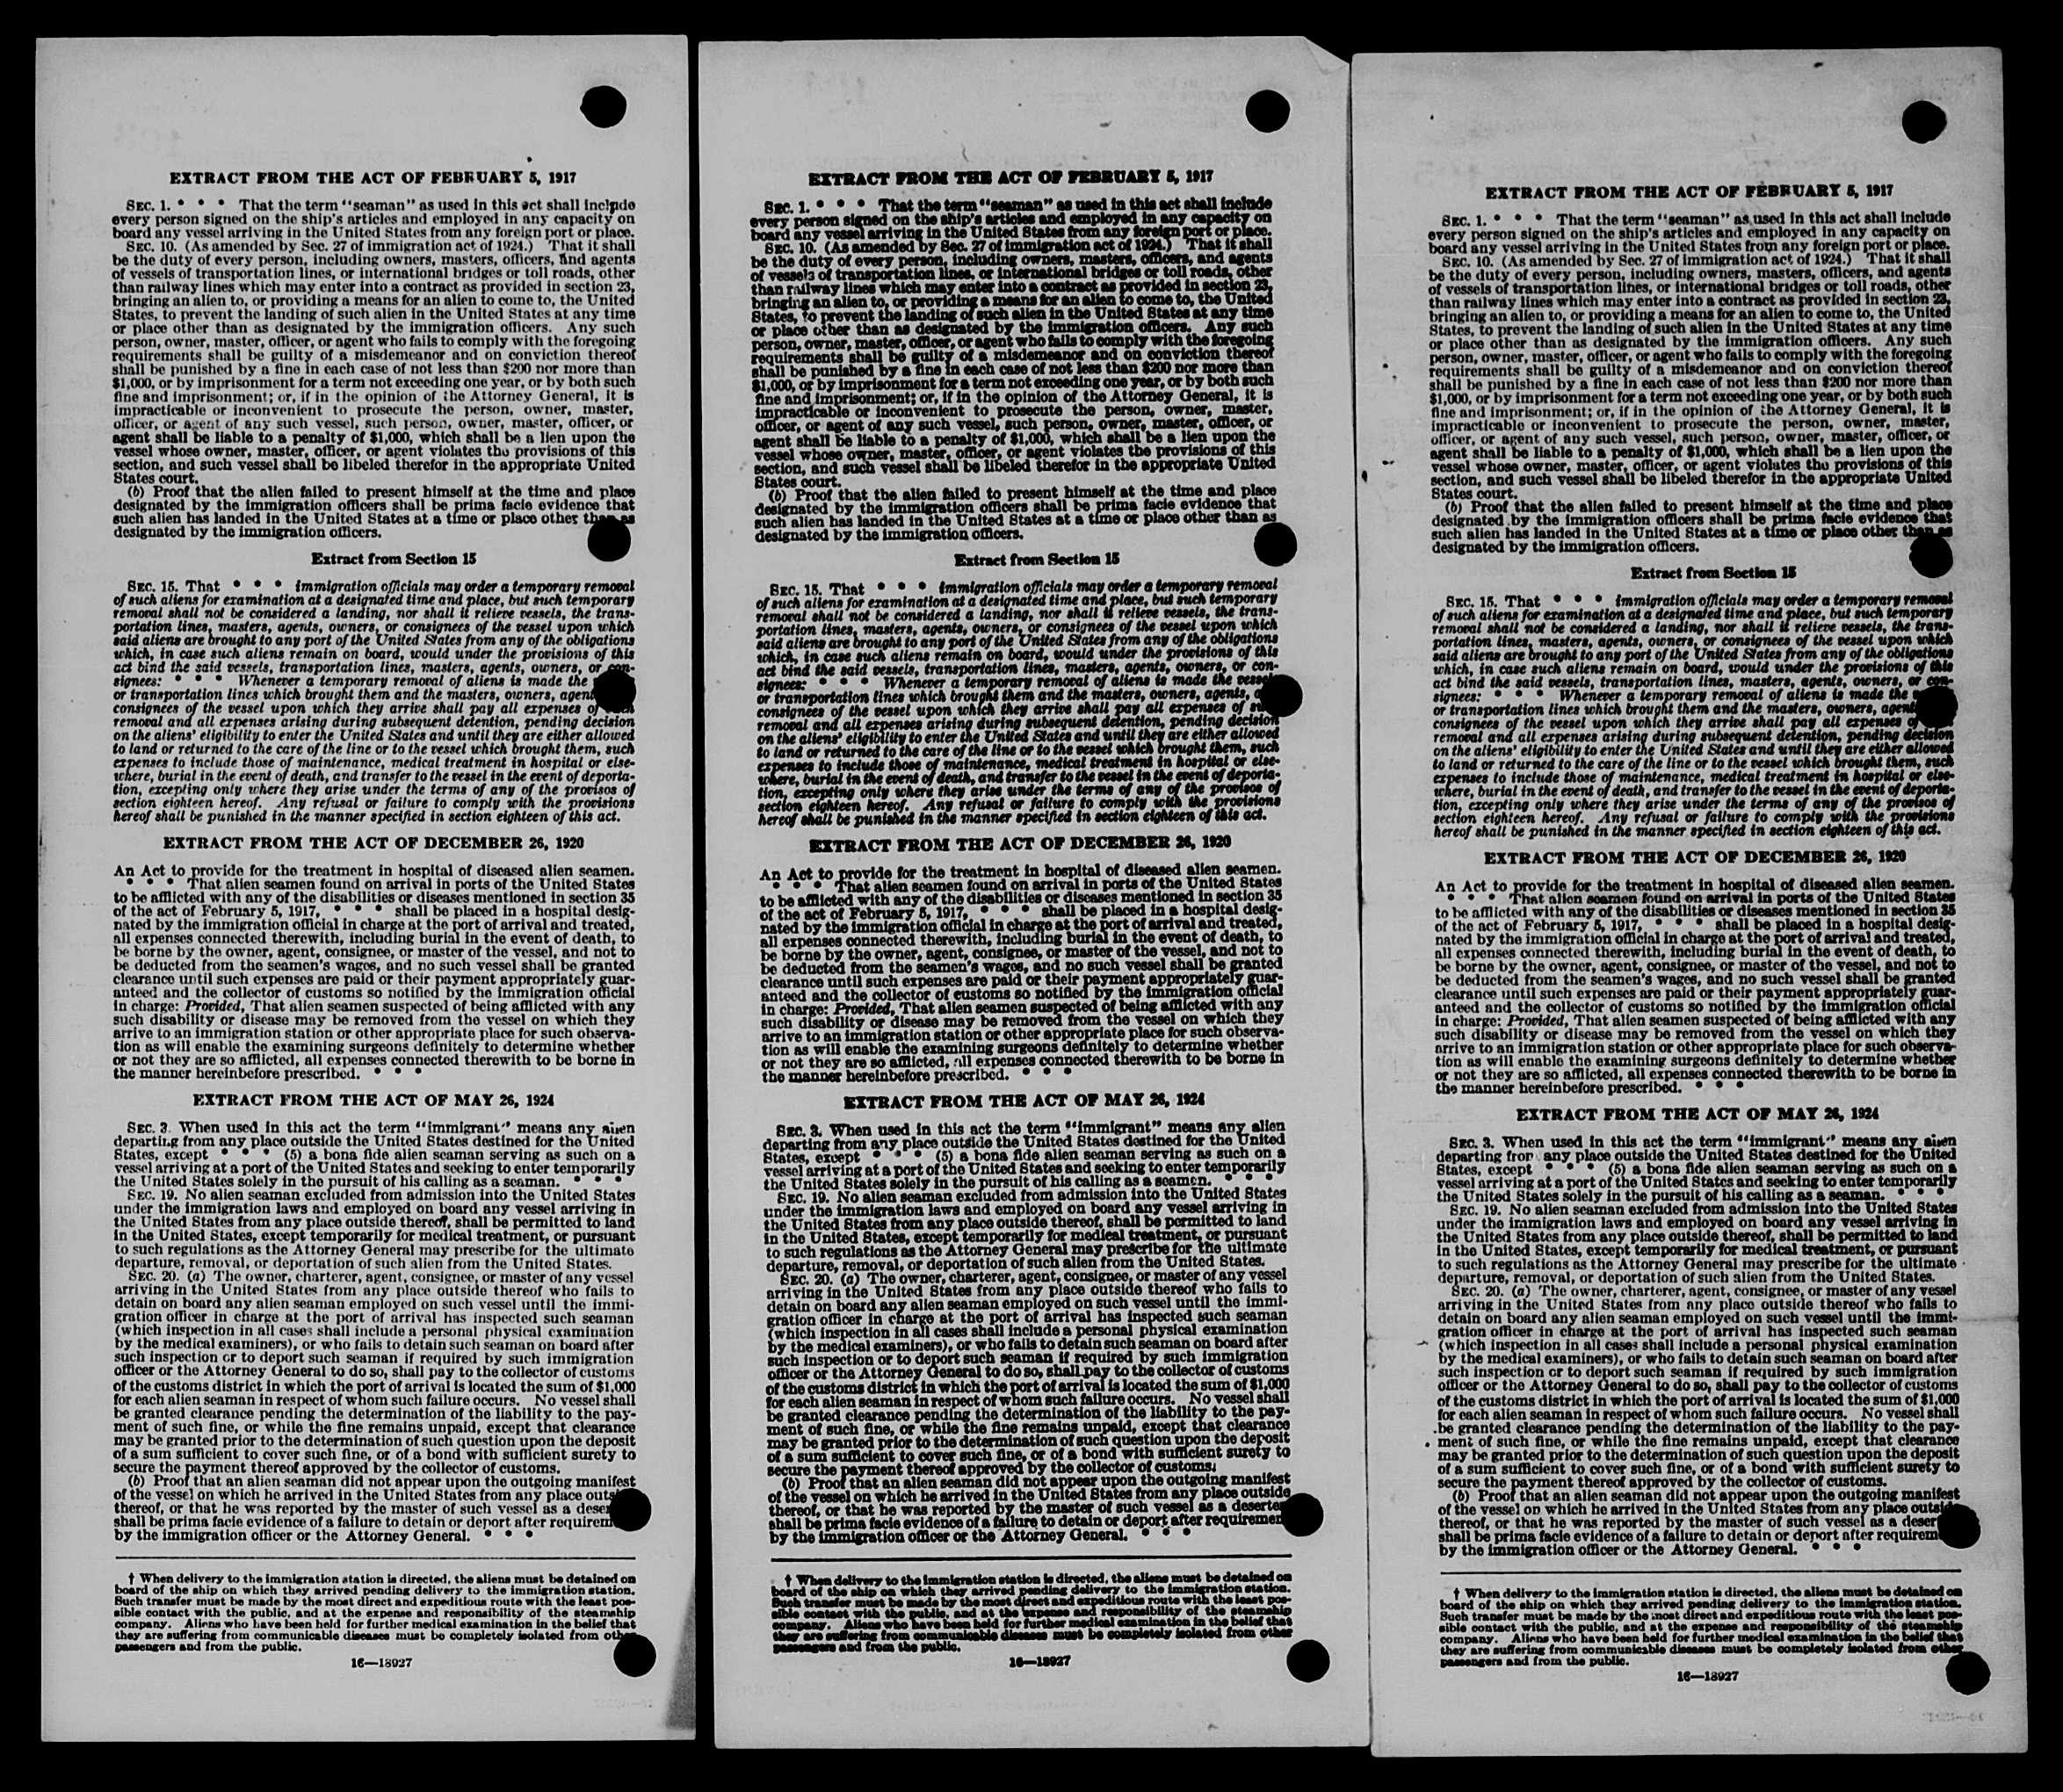 EXTRACT FROM THE ACT OF FEBRUARY 5, 1917
SEC. 1. * * * That the term "seaman" as used in this act shall include
every person signed on the ship's articles and employed in any capacity on
board any vessel arriving in the United States from any foreign port or place.
SEC. 10. (As amended by Sec. 27 of immigration act of 1924.) That it shall
be the duty of every person, including owners, masters, officers, and agents
of vessels of transportation lines, or international bridges or toll roads, other
than railway lines which may enter into a contract as provided in section 23,
bringing an alien to, or providing a means for an alien to come to, the United
States, to prevent the landing of such alien in the United States at any time
or place other than as designated by the immigration officers. Any such
person, owner, master, officer, or agent who fails to comply with the foregoing
requirements shall be guilty of a misdemeanor and on conviction thereof
shall be punished by a fine in each case of not less than $200 nor more than
$1,000, or by imprisonment for a term not exceeding one year, or by both such
fine and imprisonment; or, if in the opinion of the Attorney General, it is
impracticable or inconvenient to prosecute the person, owner, master,
officer, or agent of any such vessel, such person, owner, master, officer, or
agent shall be liable to a penalty of $1,000, which shall be a lien upon the
vessel whose owner, master, officer, or agent violates the provisions of this
section, and such vessel shall be libeled therefor in the appropriate United
States court.
(b) Proof that the alien failed to present himself at the time and place
designated by the immigration officers shall be prima facie evidence that
such alien has landed in the United States at a time or place other than as
designated by the immigration officers.
Extract from Section 15
SEC. 15. That * * * immigration officials may order a temporary removal
of such aliens for examination at a designated time and place, but such temporary
removal shall not be considered a landing, nor shall it relieve vessels, the trans-
portation lines, masters, agents, owners, or consignees of the vessel upon which
said aliens are brought to any port of the United States from any of the obligations
which, in case such aliens remain on board, would under the provisions of this
act bind the said vessels, transportation lines, masters, agents, owners, or con-
signees: * * * Whenever a temporary removal of aliens is made the
or transportation lines which brought them and the masters, owners, agent
consignees of the vessel upon which they arrive shall pay all expenses of
removal and all expenses arising during subsequent detention, pending decision
on the aliens' eligibility to enter the United States and until they are either allowed
to land or returned to the care of the line or to the vessel which brought them, such
expenses to include those of maintenance, medical treatment in hospital or else-
where, burial in the event of death, and transfer to the vessel in the event of deporta-
tion, excepting only where they arise under the terms of any of the provisos of
section eighteen hereof. Any refusal or failure to comply with the provisions
hereof shall be punished in the manner specified in section eighteen of this act.
EXTRACT FROM THE ACT OF DECEMBER 26, 1920
An Act to provide for the treatment in hospital of diseased alien seamen.
* * * That alien seamen found on arrival in ports of the United States
to be afflicted with any of the disabilities or diseases mentioned in section 35
of the act of February 5, 1917, * * * shall be placed in a hospital desig-
nated by the immigration official in charge at the port of arrival and treated,
all expenses connected therewith, including burial in the event of death, to
be borne by the owner, agent, consignee, or master of the vessel, and not to
be deducted from the seamen's wages, and no such vessel shall be granted
clearance until such expenses are paid or their payment appropriately guar-
anteed and the collector of customs so notified by the immigration official
in charge: Provided, That alien seamen suspected of being afflicted with any
such disability or disease may be removed from the vessel on which they
arrive to an immigration station or other appropriate place for such observa-
tion as will enable the examining surgeons definitely to determine whether
or not they are so afflicted, all expenses connected therewith to be borne in
the manner hereinbefore prescribed. * * *
EXTRACT FROM THE ACT OF MAY 26, 1924
SEC. 3. When used in this act the term "immigrant" means any alien
departing from any place outside the United States destined for the United
States, except * * * (5) a bona fide alien seaman serving as such on a
vessel arriving at a port of the United States and seeking to enter temporarily
the United States solely in the pursuit of his calling as a seaman. * * *
SEC. 19. No alien seaman excluded from admission into the United States
under the immigration laws and employed on board any vessel arriving in
the United States from any place outside thereof, shall be permitted to land
in the United States, except temporarily for medical treatment, or pursuant
to such regulations as the Attorney General may prescribe for the ultimate
departure, removal, or deportation of such alien from the United States.
SEC. 20. (a) The owner, charterer, agent, consignee, or master of any vessel
arriving in the United States from any place outside thereof who fails to
detain on board any alien seaman employed on such vessel until the immi-
gration officer in charge at the port of arrival has inspected such seaman
(which inspection in all cases shall include a personal physical examination
by the medical examiners), or who fails to detain such seaman on board after
such inspection or to deport such seaman if required by such immigration
officer or the Attorney General to do so, shall pay to the collector of customs
of the customs district in which the port of arrival is located the sum of $1,000
for each alien seaman in respect of whom such failure occurs. No vessel shall
be granted clearance pending the determination of the liability to the pay-
ment of such fine, or while the fine remains unpaid, except that clearance
may be granted prior to the determination of such question upon the deposit
of a sum sufficient to cover such fine, or of a bond with sufficient surety to
secure the payment thereof approved by the collector of customs.
(b) Proof that an alien seaman did not appear upon the outgoing manifest
of the vessel on which he arrived in the United States from any place outs
thereof, or that he was reported by the master of such vessel as a deser
shall be prima facie evidence of a failure to detain or deport after requirem
by the immigration officer or the Attorney General. * * *
† When delivery to the immigration station is directed, the aliens must be detained on
board of the ship on which they arrived pending delivery to the immigration station.
Such transfer must be made by the most direct and expeditious route with the least pos-
sible contact with the public, and at the expense and responsibility of the steamship
company. Aliens who have been held for further medical examination in the belief that
they are suffering from communicable diseases must be completely isolated from other
passengers and from the public.
16—18927
EXTRACT FROM THE ACT OF FEBRUARY 5, 1917
SEC. 1. * * * That the term "seaman" as used in this act shall include
every person signed on the ship's articles and employed in any capacity on
board any vessel arriving in the United States from any foreign port or place.
SEC. 10. (As amended by Sec. 27 of immigration act of 1924.) That it shall
be the duty of every person, including owners, masters, officers, and agents
of vessels of transportation lines, or international bridges or toll roads, other
than railway lines which may enter into a contract as provided in section 23,
bringing an alien to, or providing a means for an alien to come to, the United
States, to prevent the landing of such alien in the United States at any time
or place other than as designated by the immigration officers. Any such
person, owner, master, officer, or agent who fails to comply with the foregoing
requirements shall be guilty of a misdemeanor and on conviction thereof
shall be punished by a fine in each case of not less than $200 nor more than
$1,000, or by imprisonment for a term not exceeding one year, or by both such
fine and imprisonment; or, if in the opinion of the Attorney General, it is
impracticable or inconvenient to prosecute the person, owner, master,
officer, or agent of any such vessel, such person, owner, master, officer, or
agent shall be liable to a penalty of $1,000, which shall be a lien upon the
vessel whose owner, master, officer, or agent violates the provisions of this
section, and such vessel shall be libeled therefor in the appropriate United
States court.
(b) Proof that the alien failed to present himself at the time and place
designated by the immigration officers shall be prima facie evidence that
such alien has landed in the United States at a time or place other than as
designated by the immigration officers.
Extract from Section 15
SEC. 15. That * * * immigration officials may order a temporary removal
of such aliens for examination at a designated time and place, but such temporary
removal shall not be considered a landing, nor shall it relieve vessels, the trans-
portation lines, masters, agents, owners, or consignees of the vessel upon which
said aliens are brought to any port of the United States from any of the obligations
which, in case such aliens remain on board, would under the provisions of this
act bind the said vessels, transportation lines, masters, agents, owners, or con-
signees: * * * Whenever a temporary removal of aliens is made the vessel
or transportation lines which brought them and the masters, owners, agents,
consignees of the vessel upon which they arrive shall pay all expenses of
removal and all expenses arising during subsequent detention, pending decision
on the aliens' eligibility to enter the United States and until they are either allowed
to land or returned to the care of the line or to the vessel which brought them, such
expenses to include those of maintenance, medical treatment in hospital or else-
where, burial in the event of death, and transfer to the vessel in the event of deporta-
tion, excepting only where they arise under the terms of any of the provisos of
section eighteen hereof. Any refusal or failure to comply with the provisions
hereof shall be punished in the manner specified in section eighteen of this act.
EXTRACT FROM THE ACT OF DECEMBER 26, 1920
An Act to provide for the treatment in hospital of diseased alien seamen.
* * * That alien seamen found on arrival in ports of the United States
to be afflicted with any of the disabilities or diseases mentioned in section 35
of the act of February 5, 1917, * * * shall be placed in a hospital desig-
nated by the immigration official in charge at the port of arrival and treated,
all expenses connected therewith, including burial in the event of death, to
be borne by the owner, agent, consignee, or master of the vessel, and not to
be deducted from the seamen's wages, and no such vessel shall be granted
clearance until such expenses are paid or their payment appropriately guar-
anteed and the collector of customs so notified by the immigration official
in charge: Provided, That alien seamen suspected of being afflicted with any
such disability or disease may be removed from the vessel on which they
arrive to an immigration station or other appropriate place for such observa-
tion as will enable the examining surgeons definitely to determine whether
or not they are so afflicted, all expenses connected therewith to be borne in
the manner hereinbefore prescribed. * * *
EXTRACT FROM THE ACT OF MAY 26, 1924
SEC. 3. When used in this act the term "immigrant" means any alien
departing from any place outside the United States destined for the United
States, except * * * (5) a bona fide alien seaman serving as such on a
vessel arriving at a port of the United States and seeking to enter temporarily
the United States solely in the pursuit of his calling as a seaman. * * *
SEC. 19. No alien seaman excluded from admission into the United States
under the immigration laws and employed on board any vessel arriving in
the United States from any place outside thereof, shall be permitted to land
in the United States, except temporarily for medical treatment, or pursuant
to such regulations as the Attorney General may prescribe for the ultimate
departure, removal, or deportation of such alien from the United States.
SEC. 20. (a) The owner, charterer, agent, consignee, or master of any vessel
arriving in the United States from any place outside thereof who fails to
detain on board any alien seaman employed on such vessel until the immi-
gration officer in charge at the port of arrival has inspected such seaman
(which inspection in all cases shall include a personal physical examination
by the medical examiners), or who fails to detain such seaman on board after
such inspection or to deport such seaman if required by such immigration
officer or the Attorney General to do so, shall pay to the collector of customs
of the customs district in which the port of arrival is located the sum of $1,000
for each alien seaman in respect of whom such failure occurs. No vessel shall
be granted clearance pending the determination of the liability to the pay-
ment of such fine, or while the fine remains unpaid, except that clearance
may be granted prior to the determination of such question upon the deposit
of a sum sufficient to cover such fine, or of a bond with sufficient surety to
secure the payment thereof approved by the collector of customs.
(b) Proof that an alien seaman did not appear upon the outgoing manifest
of the vessel on which he arrived in the United States from any place outside
thereof, or that he was reported by the master of such vessel as a deserte
shall be prima facie evidence of a failure to detain or deport after requiremen
by the immigration officer or the Attorney General. * * *
† When delivery to the immigration station is directed, the aliens must be detained on
board of the ship on which they arrived pending delivery to the immigration station.
Such transfer must be made by the most direct and expeditious route with the least pos-
sible contact with the public, and at the expense and responsibility of the steamship
company. Aliens who have been held for further medical examination in the belief that
they are suffering from communicable diseases must be completely isolated from other
passengers and from the public.
16—18927
EXTRACT FROM THE ACT OF FEBRUARY 5, 1917
SEC. 1. * * * That the term "seaman" as used in this act shall include
every person signed on the ship's articles and employed in any capacity on
board any vessel arriving in the United States from any foreign port or place.
SEC. 10. (As amended by Sec. 27 of immigration act of 1924.) That it shall
be the duty of every person, including owners, masters, officers, and agents
of vessels of transportation lines, or international bridges or toll roads, other
than railway lines which may enter into a contract as provided in section 23,
bringing an alien to, or providing a means for an alien to come to, the United
States, to prevent the landing of such alien in the United States at any time
or place other than as designated by the immigration officers. Any such
person, owner, master, officer, or agent who fails to comply with the foregoing
requirements shall be guilty of a misdemeanor and on conviction thereof
shall be punished by a fine in each case of not less than $200 nor more than
$1,000, or by imprisonment for a term not exceeding one year, or by both such
fine and imprisonment; or, if in the opinion of the Attorney General, it is
impracticable or inconvenient to prosecute the person, owner, master,
officer, or agent of any such vessel, such person, owner, master, officer, or
agent shall be liable to a penalty of $1,000, which shall be a lien upon the
vessel whose owner, master, officer, or agent violates the provisions of this
section, and such vessel shall be libeled therefor in the appropriate United
States court.
(b) Proof that the alien failed to present himself at the time and place
designated by the immigration officers shall be prima facie evidence that
such alien has landed in the United States at a time or place other than as
designated by the immigration officers.
Extract from Section 15
SEC. 15. That * * * immigration officials may order a temporary removal
of such aliens for examination at a designated time and place, but such temporary
removal shall not be considered a landing, nor shall it relieve vessels, the trans-
portation lines, masters, agents, owners, or consignees of the vessel upon which
said aliens are brought to any port of the United States from any of the obligations
which, in case such aliens remain on board, would under the provisions of this
act bind the said vessels, transportation lines, masters, agents, owners, or con-
signees: * * * Whenever a temporary removal of aliens is made the
or transportation lines which brought them and the masters, owners, agent
consignees of the vessel upon which they arrive shall pay all expenses of
removal and all expenses arising during subsequent detention, pending decision
on the aliens' eligibility to enter the United States and until they are either allowed
to land or returned to the care of the line or to the vessel which brought them, such
expenses to include those of maintenance, medical treatment in hospital or else-
where, burial in the event of death, and transfer to the vessel in the event of deporta-
tion, excepting only where they arise under the terms of any of the provisos of
section eighteen hereof. Any refusal or failure to comply with the provisions
hereof shall be punished in the manner specified in section eighteen of this act.
EXTRACT FROM THE ACT OF DECEMBER 26, 1920
An Act to provide for the treatment in hospital of diseased alien seamen.
* * * That alien seamen found on arrival in ports of the United States
to be afflicted with any of the disabilities or diseases mentioned in section 35
of the act of February 5, 1917, * * * shall be placed in a hospital desig-
nated by the immigration official in charge at the port of arrival and treated,
all expenses connected therewith, including burial in the event of death, to
be borne by the owner, agent, consignee, or master of the vessel, and not to
be deducted from the seamen's wages, and no such vessel shall be granted
clearance until such expenses are paid or their payment appropriately guar-
anteed and the collector of customs so notified by the immigration official
in charge: Provided, That alien seamen suspected of being afflicted with any
such disability or disease may be removed from the vessel on which they
arrive to an immigration station or other appropriate place for such observa-
tion as will enable the examining surgeons definitely to determine whether
or not they are so afflicted, all expenses connected therewith to be borne in
the manner hereinbefore prescribed. * * *
EXTRACT FROM THE ACT OF MAY 26, 1924
SEC. 3. When used in this act the term "immigrant" means any alien
departing from any place outside the United States destined for the United
States, except * * * (5) a bona fide alien seaman serving as such on a
vessel arriving at a port of the United States and seeking to enter temporarily
the United States solely in the pursuit of his calling as a seaman. * * *
SEC. 19. No alien seaman excluded from admission into the United States
under the immigration laws and employed on board any vessel arriving in
the United States from any place outside thereof, shall be permitted to land
in the United States, except temporarily for medical treatment, or pursuant
to such regulations as the Attorney General may prescribe for the ultimate
departure, removal, or deportation of such alien from the United States.
SEC. 20. (a) The owner, charterer, agent, consignee, or master of any vessel
arriving in the United States from any place outside thereof who fails to
detain on board any alien seaman employed on such vessel until the immi-
gration officer in charge at the port of arrival has inspected such seaman
(which inspection in all cases shall include a personal physical examination
by the medical examiners), or who fails to detain such seaman on board after
such inspection or to deport such seaman if required by such immigration
officer or the Attorney General to do so, shall pay to the collector of customs
of the customs district in which the port of arrival is located the sum of $1,000
for each alien seaman in respect of whom such failure occurs. No vessel shall
be granted clearance pending the determination of the liability to the pay-
ment of such fine, or while the fine remains unpaid, except that clearance
may be granted prior to the determination of such question upon the deposit
of a sum sufficient to cover such fine, or of a bond with sufficient surety to
secure the payment thereof approved by the collector of customs.
(b) Proof that an alien seaman did not appear upon the outgoing manifest
of the vessel on which he arrived in the United States from any place outside
thereof, or that he was reported by the master of such vessel as a deser
shall be prima facie evidence of a failure to detain or deport after requirem
by the immigration officer or the Attorney General. * * *
† When delivery to the immigration station is directed, the aliens must be detained on
board of the ship on which they arrived pending delivery to the immigration station.
Such transfer must be made by the most direct and expeditious route with the least pos-
sible contact with the public, and at the expense and responsibility of the steamship
company. Aliens who have been held for further medical examination in the belief that
they are suffering from communicable diseases must be completely isolated from other
passengers and from the public.
16—18927